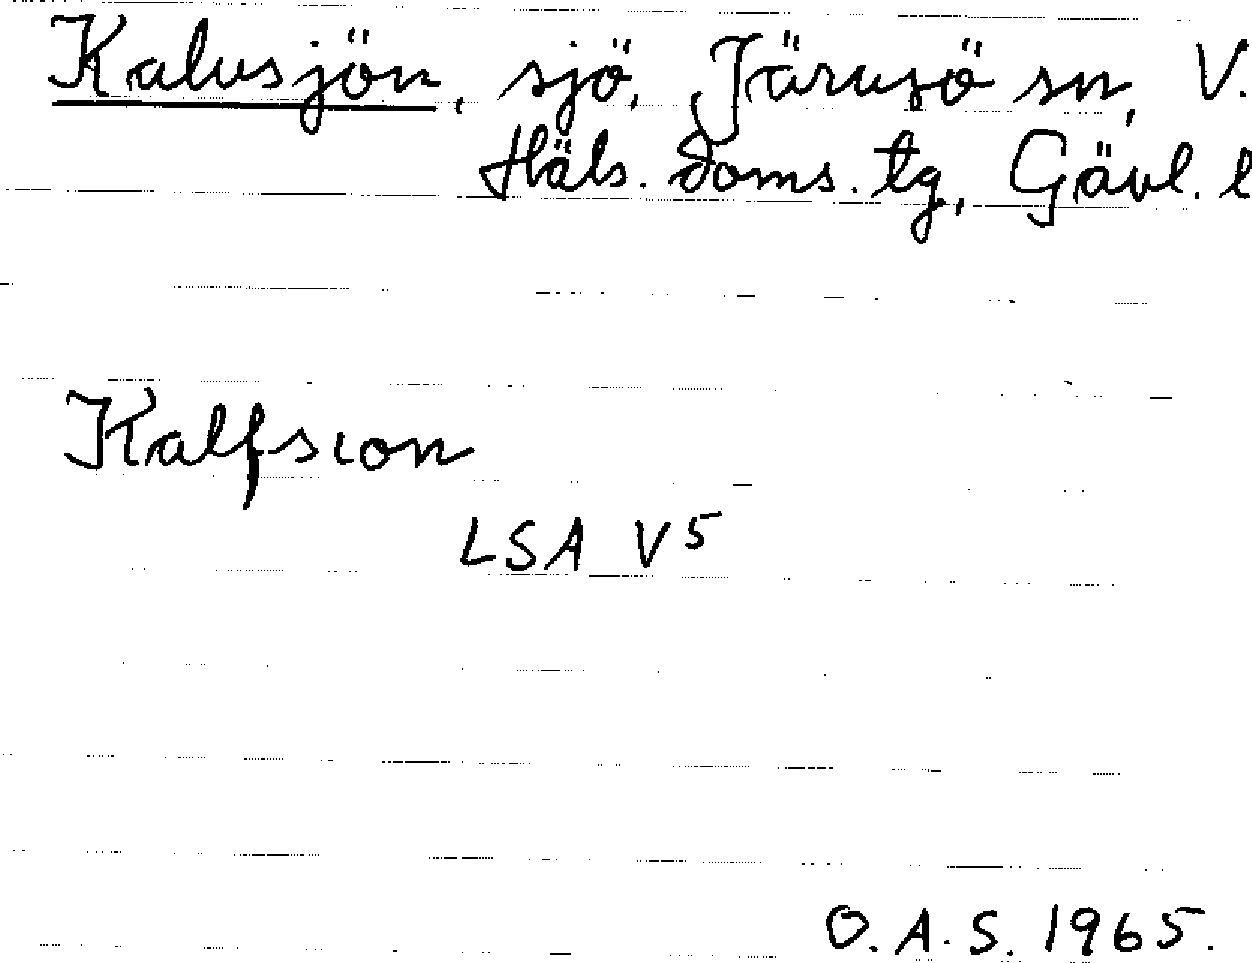 Kalvsjön, sjö, Järvsö sn, V.
Häls. doms. tg, Gävl. l
Kalfsion
LSA V5
O.A.S. 1965.